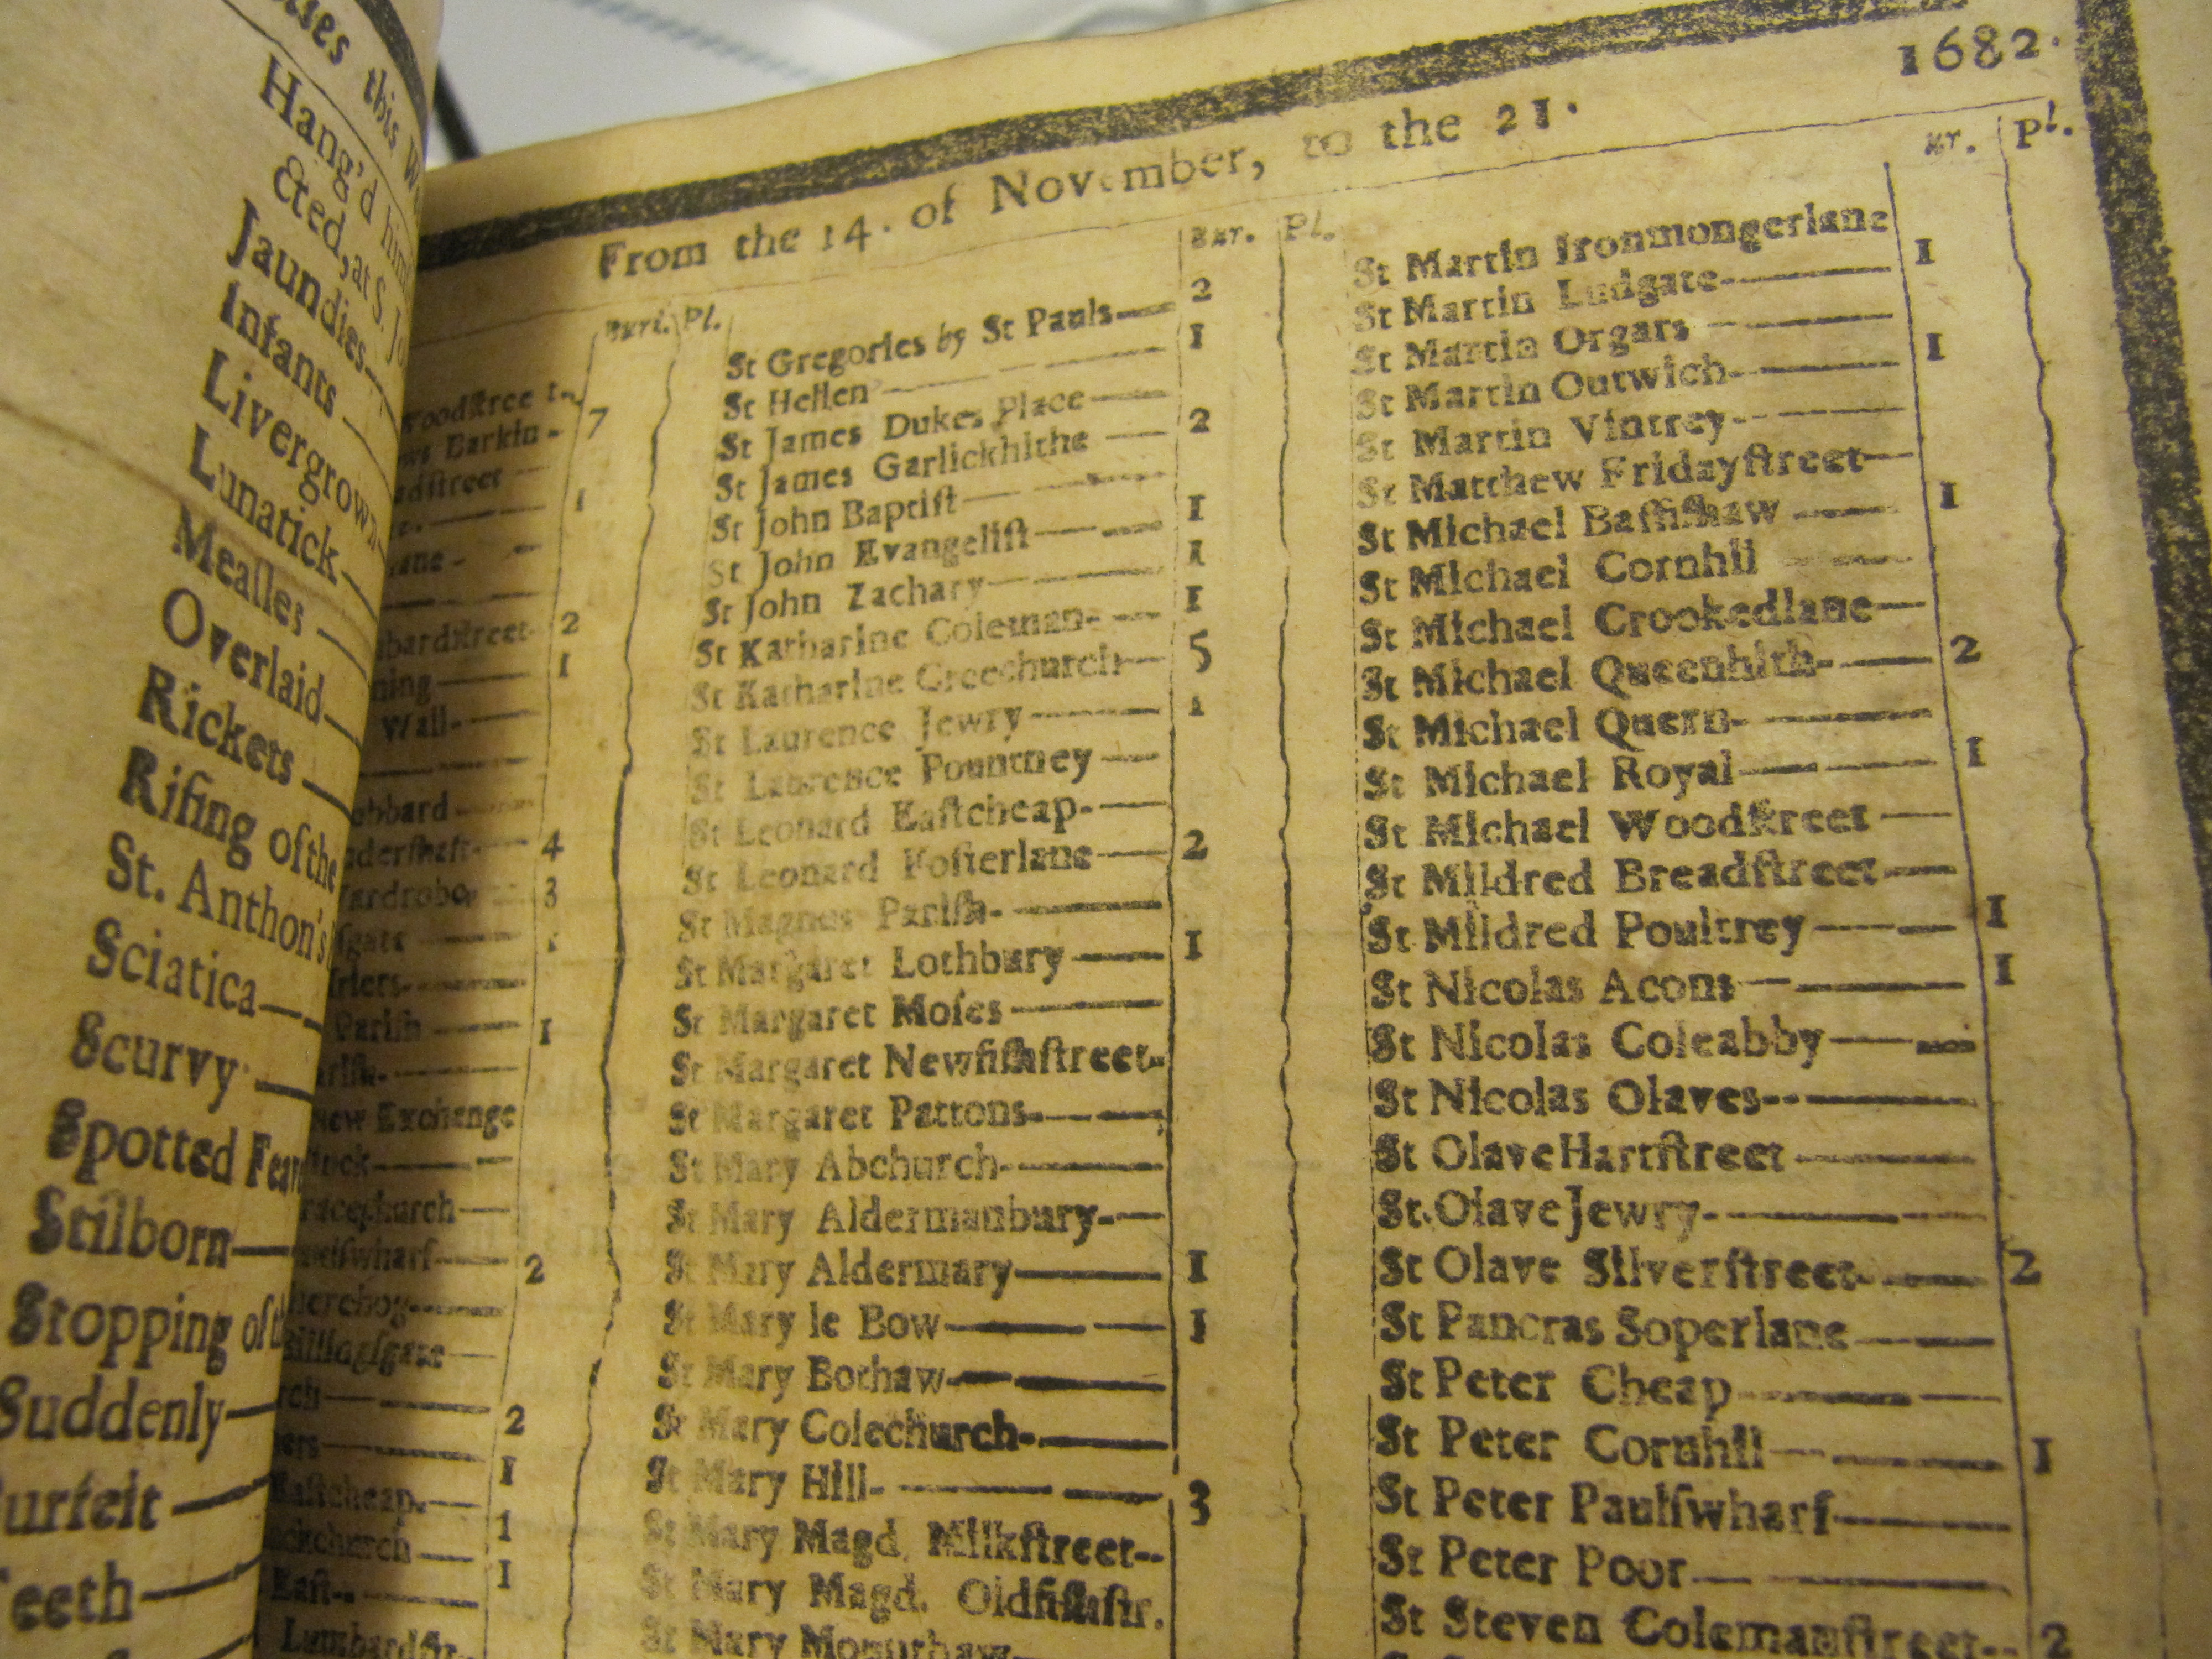 this
Hang'd
&ted, at S.
Jaundies
Infants
Livergrown
Lunatick
Measles
Overlaid
Rickets
Riſing of the
St. Anthon's
Sciatica
Scurvy
Spotted
Stilborn
Stopping of
Suddenly
eeth
1682.
From the 14. of November, to the 21.
Buri. Pl.
Woodſtreet
Barkin - 7
1
2
1
Wall
4
3
1
Pariſh 1
New Exchange
2
2
1
1
1
Bur. Pl.
St Gregories by St Pauls 2
St Hellen 1
St James Dukes Place
St James Garlickhithe 2
St John Baptiſt
St John Evangeliſt 1
St John Zachary 1
St Katharine Coleman 1
St Katharine Creechurch 5
St Laurence Jewry 1
St Laurence Pountney
St Leonard Eaſtcheap
St Leonard Foſterlane 2
St Magnus Pariſh
St Margaret Lothbury 1
St Margaret Moſes
St Margaret Newfiſhſtreet
St Margaret Pattons
St Mary Abchurch
St Mary Aldermanbury
St Mary Aldermary 1
St Mary le Bow 1
St Mary Bothaw
St Mary Colechurch
St Mary Hill 3
St Mary Magd. Milkſtreet
St Mary Magd. Oldfiſhſtr.
St Mary Mounthaw
Bur. Pl.
St Martin Ironmongerlane
St Martin Ludgate 1
St Martin Orgars
St Martin Outwich 1
St Martin Vintrey
St Matthew Fridayſtreet
St Michael Baſſiſhaw 1
St Michael Cornhil
St Michael Crookedlane
St Michael Queenhith 2
St Michael Quern
St Michael Royal 1
St Michael Woodſtreet
St Mildred Breadſtreet
St Mildred Poultrey 1
St Nicolas Acons 1
St Nicolas Coleabby
St Nicolas Olaves
St Olave Hartſtreet
St. Olave Jewry
St Olave Silverſtreet 2
St Pancras Soperlane
St Peter Cheap
St Peter Cornhil 1
St Peter Paulſwharf
St Peter Poor
St Steven Colemanſtreet 2